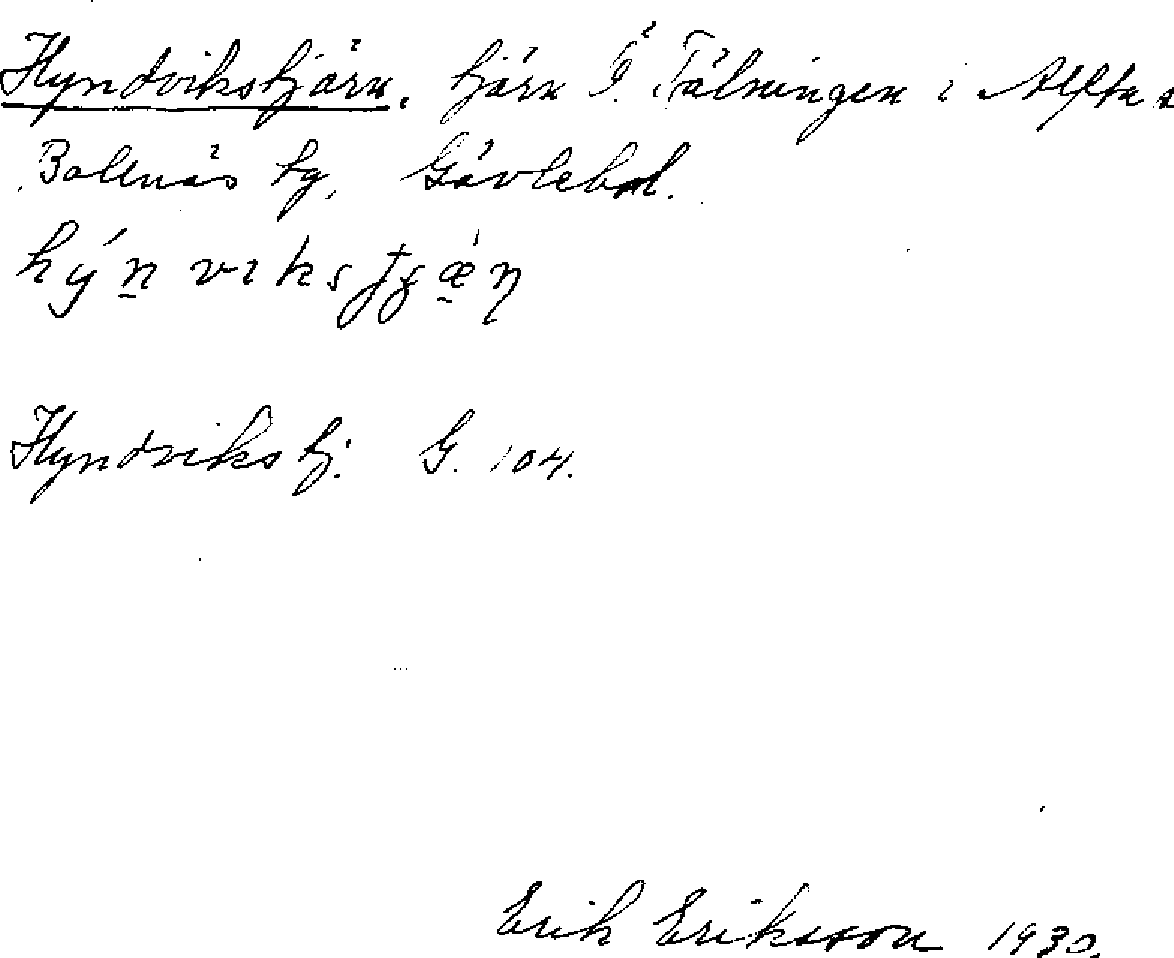 Hyndvikstjärn, tjärn Ö. Fälningen i Alfta s
Bollnäs tg, Gävlebd.
hýn vikstjæ̀ɳ
Hyndvikstj. G. 104.
Erik Eriksson 1930.